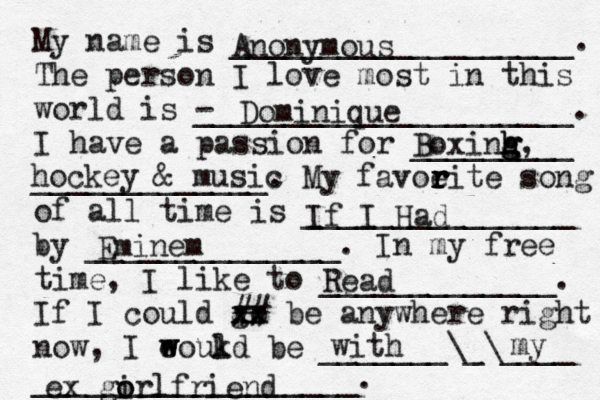 My name is Anonymous.
The person I love most in this
world is - Dominique.
I have a passion for Boxing,
hockey & music. My favorite song
of all time is If I Had
by Eminem. In my free
time, I like to Read.
If I could ## be anywhere right
now, I would be with \ \ my
ex girlfriend.